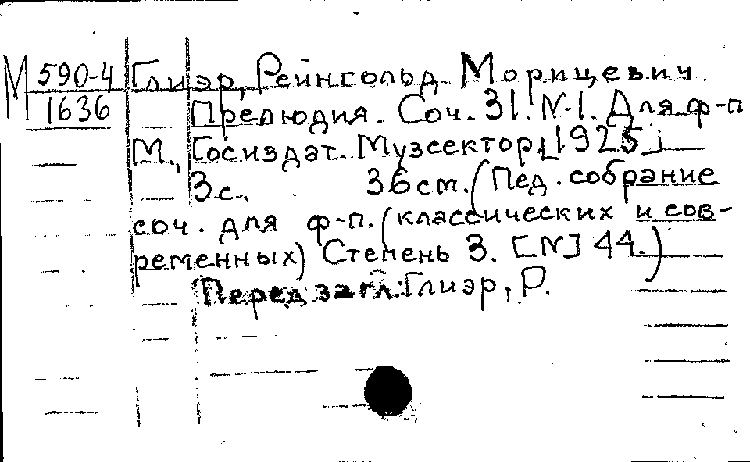 М 590-4 Глиэр, Рейнгольд Морицевич
1636 Прелюдия. Соч. 31. №1. Для ф-п
М., Госиздат. Музсектор, [1925]
3с. 36см. (Пед. собрание
соч. для ф-п. (классических и сов-
ременных) Степень 3. [N] 44.)
Перед загл.: Глиэр, Р.